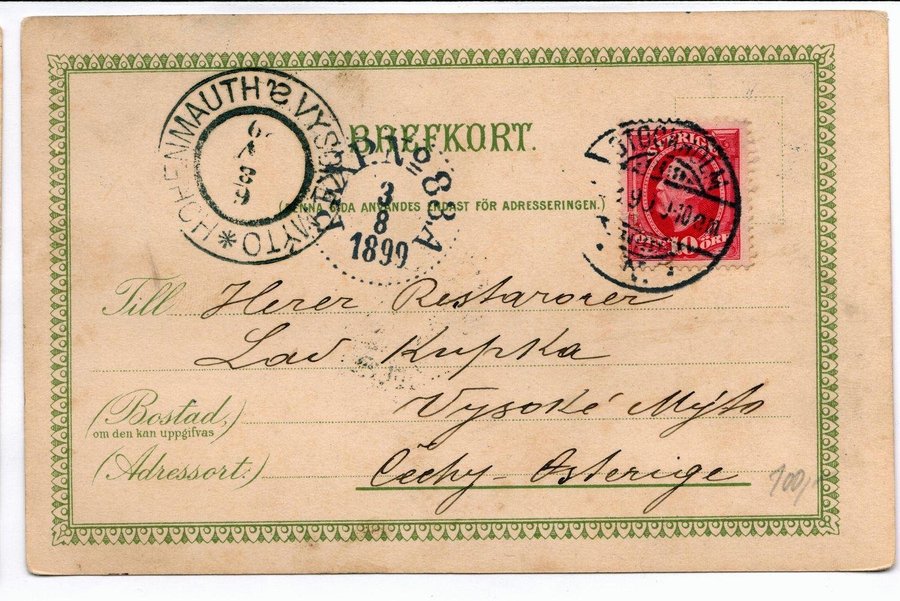 BREFKORT.
(DENNA SIDA ANVÄNDES ENDAST FÖR ADRESSERINGEN.)
HOHENMAUTH VYSOKÉ MÝTO
PKXP. No 83.A
3
8
1899
STOCKHOLM
SVERIGE
10 ÖRE
Till Herer Restarorer
Lad Kupka
(Bostad,)
om den kan uppgifvas
Vysoké Mýto
(Adressort:)
Čechy-Osterige
100,-